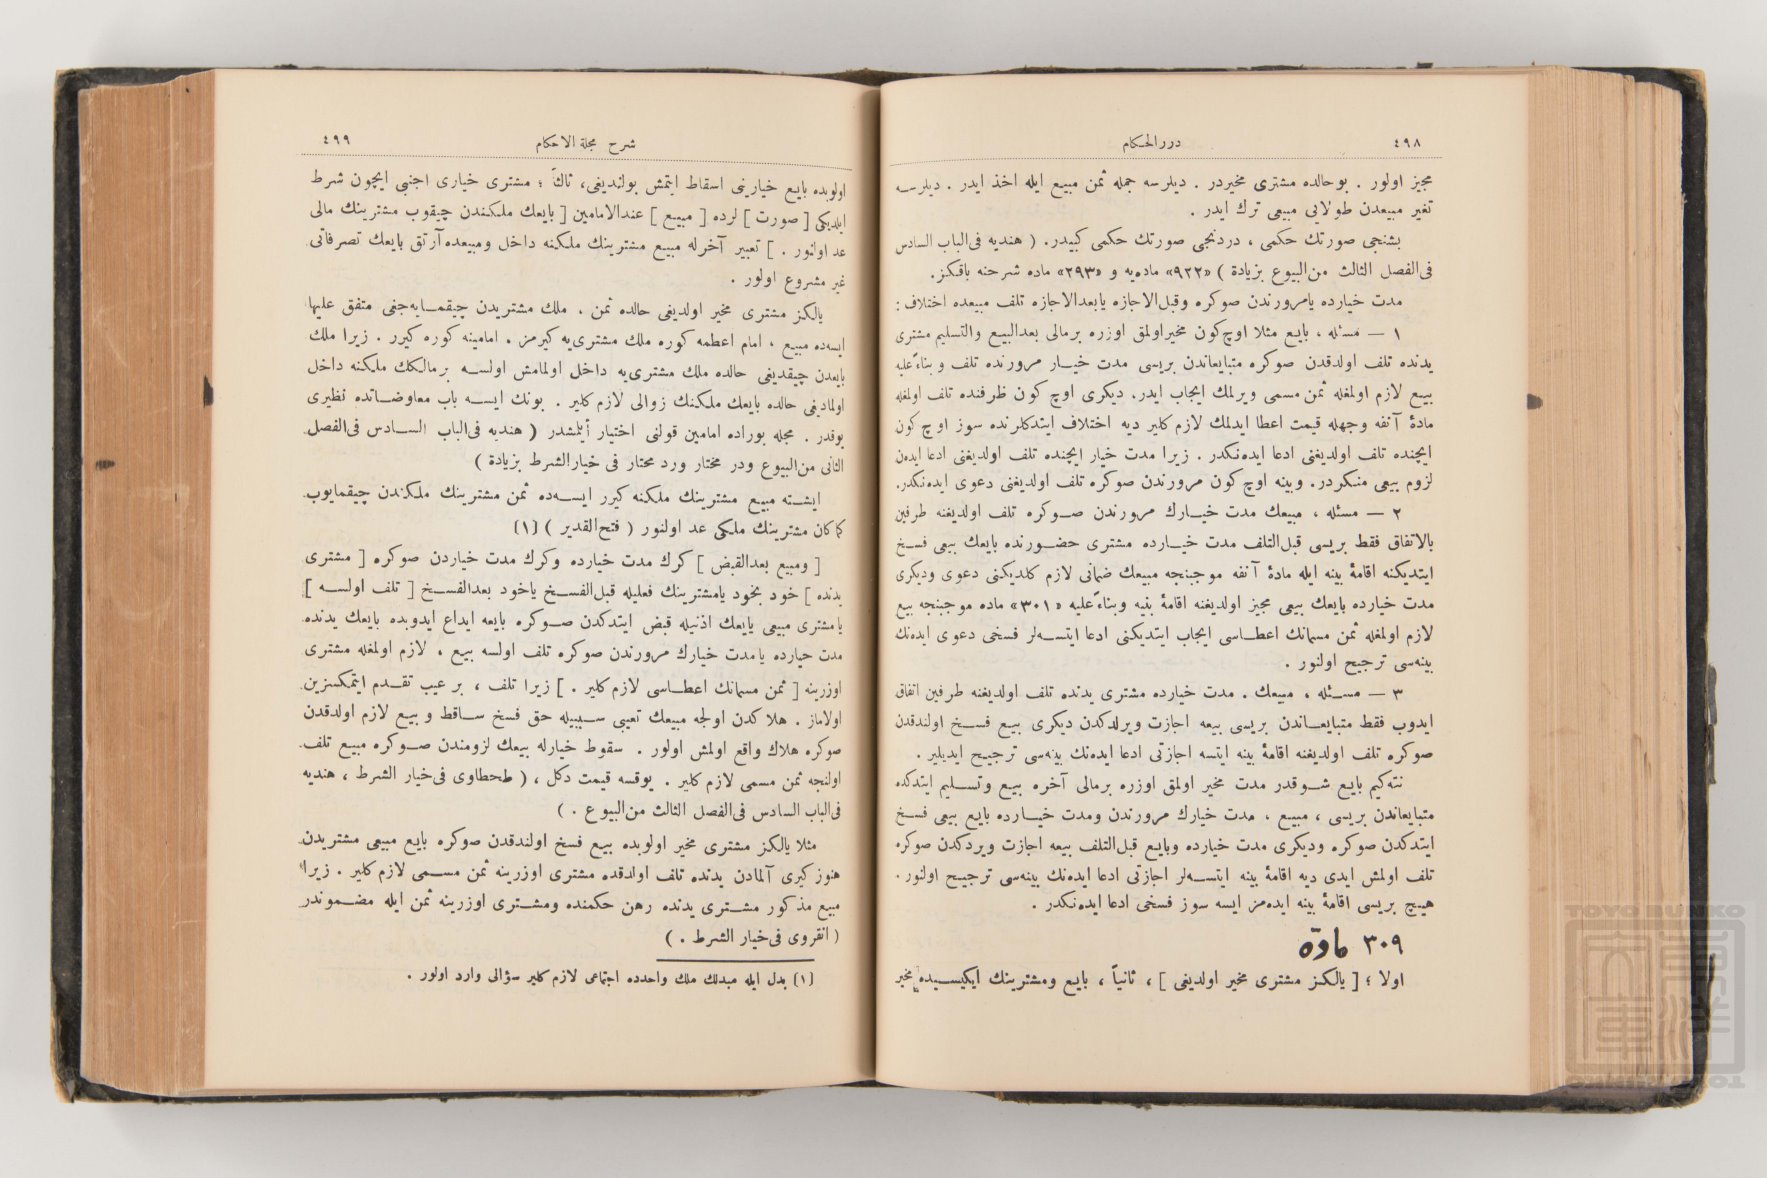 ٤٩٨
دررالحكام
مجيز اولور . بوحالده مشترى مخيردر . ديلرسه جمله ثمن مبيع ايله اخذ ايدر . ديلرسه
تغير مبيعدن طولايى مبيعى ترك ايدر .
بشنجى صورتك حكمى ، دردنجى صورتك حكمى كبيدر. ( هنديه فى الباب السادس
فى الفصل الثالث من البيوع بزيادة ) «٩٢٢» ماده يه و «٢٩٣» ماده شرحنه باقكز.
مدت خيارده يامرورندن صوكره وقبل الاجازه يابعدالاجازه تلف مبيعده اختلاف :
١ — مسئله ، بايع مثلا اوچ كون مخيراولمق اوزره برمالى بعدالبيع والتسليم مشترى
يدنده تلف اولدقدن صوكره متبايعاندن بريسى مدت خيار مرورنده تلف و بناءً عليه
بيع لازم اولمغله ثمن مسمى ويرلمك ايجاب ايدر، ديكرى اوچ كون ظرفنده تلف اولمغله
مادۀ آنفه وجهله قيمت اعطا ايدلمك لازم كلير ديه اختلاف ايتدكلرنده سوز اوچ كون
ايچنده تلف اولديغنى ادعا ايده نكدر . زيرا مدت خيار ايچنده تلف اولديغنى ادعا ايدەن
لزوم بيعى منكردر. وبينه اوچ كون مرورندن صوكره تلف اولديغنى دعوى ايده نكدر.
٢ — مسئله ، مبيعك مدت خيارك مرورندن صوكره تلف اولديغنه طرفين
بالاتفاق فقط بريسى قبل التلف مدت خيارده مشترى حضورنده بايعك بيعى فسخ
ايتديكنه اقامۀ بينه ايله مادۀ آنفه موجبنجه مبيعك ضمانى لازم كلديكنى دعوى وديكرى
مدت خيارده بايعك بيعى مجيز اولديغنه اقامۀ بنيه وبناءً عليه «٣٠١» ماده موجبنجه بيع
لازم اولمغله ثمن مسمانك اعطاسى ايجاب ايتديكنى ادعا ايتسه لر فسخى دعوى ايده نك
بينه سى ترجيح اولنور .
٣ — مسئله ، مبيعك . مدت خيارده مشترى يدنده تلف اولديغنه طرفين اتفاق
ايدوب فقط متبايعاندن بريسى بيعه اجازت ويرلدكدن ديكرى بيع فسخ اولندقدن
صوكره تلف اولديغنه اقامۀ بينه ايتسه اجازتى ادعا ايده نك بينه سى ترجيح ايديلير .
نته كيم بايع شوقدر مدت مخير اولمق اوزره برمالى آخره بيع وتسليم ايتدكده
متبايعاندن بريسى ، مبيع ، مدت خيارك مرورندن ومدت خيارده بايع بيعى فسخ
ايتدكدن صوكره وديكرى مدت خيارده وبايع قبل التلف بيعه اجازت ويردكدن صوكره
تلف اولمش ايدى ديه اقامۀ بينه ايتسه لر اجازتى ادعا ايده نك بينه سى ترجيح اولنور .
هيچ بريسى اقامۀ بينه ايده مز ايسه سوز فسخى ادعا ايده نكدر .
٣٠٩ مادّه
اولا ؛ [ يالكز مشترى مخير اولديغى ] ، ثانياً ، بايع ومشترينك ايكيسيده مخير
شرح مجلة الاحكام
٤٩٩
اولوبده بايع خيارينى اسقاط ايتمش بولنديغى، ثالثً ؛ مشترى خيارى اجنبى ايچون شرط
ايلديكى [ صورت ] لرده [ مبيع ] عندالامامين [ بايعك ملكندن چيقوب مشترينك مالى
عد اولنور . ] تعبير آخرله مبيع مشترينك ملكنه داخل ومبيعده آرتق بايعك تصرفاتى
غير مشروع اولور .
يالكز مشترى مخير اولديغى حالده ثمن ، ملك مشتريدن چيقمايه جغى متفق عليها
ايسه ده مبيع ، امام اعظمه كوره ملك مشترى يه كيرمز . امامينه كوره كيرر . زيرا ملك
بايعدن چيقديغى حالده ملك مشترى يه داخل اولمامش اولسه برمالكك ملكنه داخل
اولماديغى حالده بايعك ملكنك زوالى لازم كلير . بونك ايسه باب معاوضاتده نظيرى
يوقدر . مجله بوراده امامين قولنى اختيار أيلمشدر ( هنديه فى الباب السادس فى الفصل
الثانى من البيوع ودر مختار ورد محتار فى خيار الشرط بزيادة )
ايشته مبيع مشترينك ملكنه كيرر ايسه ده ثمن مشترينك ملكندن چيقمايوب
كماكان مشترينك ملكى عد اولنور ( فتح القدير ) (١)
[ ومبيع بعدالقبض ] كرك مدت خيارده وكرك مدت خياردن صوكره [ مشترى
يدنده ] خود بخود يامشترينك فعليله قبل الفسخ ياخود بعدالفسخ [ تلف اولسه ]
يا مشترى مبيعى بايعك اذنيله قبض ايتدكدن صوكره بايعه ايداع ايدوبده بايعك يدنده
مدت خيارده يا مدت خيارك مرورندن صوكره تلف اولسه بيع ، لازم اولمغله مشترى
اوزرينه [ ثمن مسمانك اعطاسى لازم كلير . ] زيرا تلف ، بر عيب تقدم ايتمكسزين
اولاماز . هلاكدن اولجه مبيعك تعيبى سببيله حق فسخ ساقط و بيع لازم اولدقدن
صوكره هلاك واقع اولمش اولور . سقوط خيارله بيعك لزومندن صوكره مبيع تلف
اولنجه ثمن مسمى لازم كلير . يوقسه قيمت دكل ، ( طحطاوى فى خيار الشرط ، هنديه
فى الباب السادس فى الفصل الثالث من البيوع . )
مثلا يالكز مشترى مخير اولوبده بيع فسخ اولندقدن صوكره بايع مبيعى مشتريدن
هنوز كيرى آلمادن يدنده تلف اولدقده مشترى اوزرينه ثمن مسمى لازم كلير . زيرا
مبيع مذكور مشترى يدنده رهن حكمنده ومشترى اوزرينه ثمن ايله مضموندر
( انقروى فى خيار الشرط . )
(١) بدل ايله مبدلك ملك واحدده اجتماعى لازم كلير سؤالى وارد اولور .
TOYO BUNKO